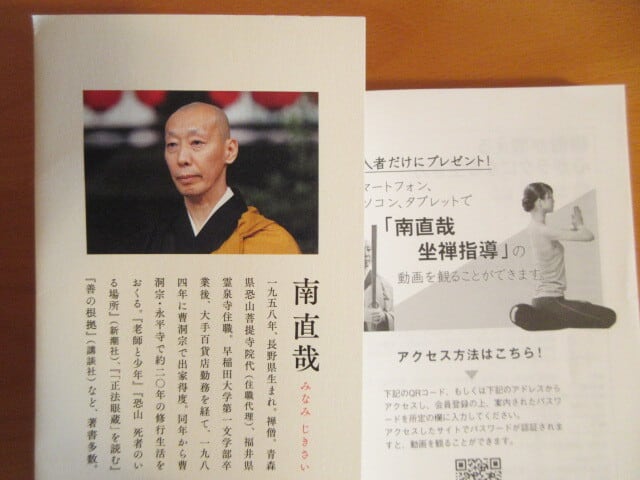 南直哉 みなみ じきさい
一九五八年、長野県生まれ。禅僧。青森
県恐山菩提寺院代（住職代理）、福井県
霊泉寺住職。早稲田大学第一文学部卒
業後、大手百貨店勤務を経て、一九八
四年に曹洞宗で出家得度。同年から曹
洞宗・永平寺で約二〇年の修行生活を
おくる。『老師と少年』『恐山 死者のい
る場所』（新潮社）、『「正法眼蔵」を読む』
『善の根拠』（講談社）など、著書多数。
人者だけにプレゼント！
マートフォン、
ソコン、タブレットで
「南直哉
坐禅指導」の
動画を観ることができます。
アクセス方法はこちら！
下記のQRコード、もしくは下記のアドレスから
アクセスし、会員登録の上、案内されたパスワー
ドを所定の欄に入力してください。
アクセスしたサイトでパスワードが認証されま
すと、動画を観ることができます。